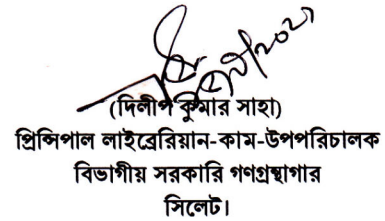 (দিলীপ কুমার সাহা)
প্রিন্সিপাল লাইব্রেরিয়ান-কাম-উপপরিচালক
বিভাগীয় সরকারি গণগ্রন্থাগার
সিলেট।